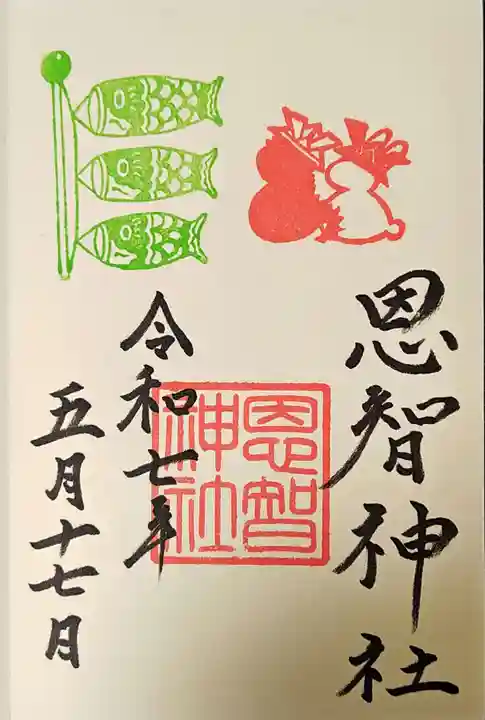 恩智神社
令和七年
五月十七日
恩智
神社